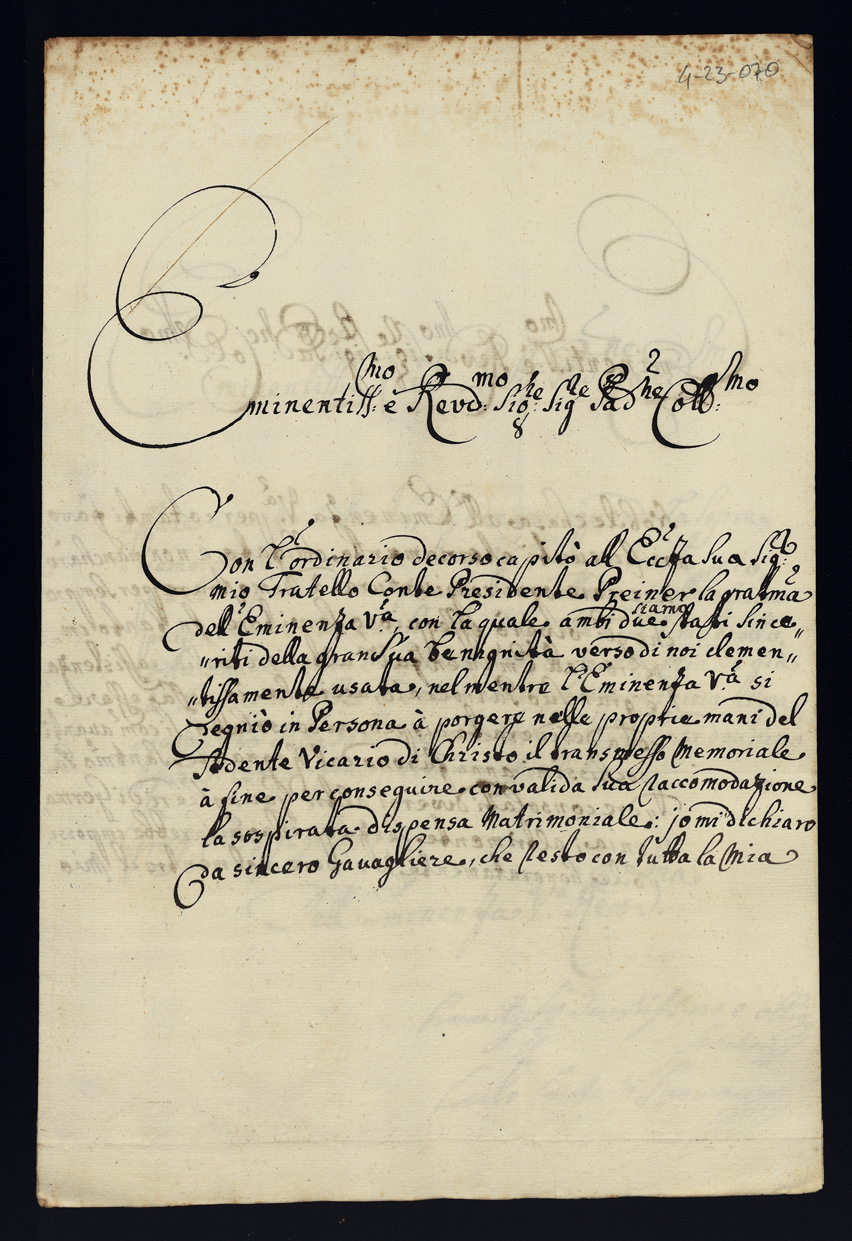 4-23-070
Eminentiss:mo è Revd:mo Sig:re Sig:re Padne Coll:mo
Con l'ordinario decorso capitò all Eccza Sua Sig:
mio Fratello Conte Presidente Preiner la gratma
dell'Eminenza V:a, con la quale ambi due siamo stati since„
„riti della gran Sua benignità verso di noi clemen„
„tissamente usata, nel mentre l'Eminenza V:a si
degniò in Persona à porgere nelle proprie mani del
Sedente Vicario di Christo il transmesso Memoriale
à fine per conseguire con valida sua raccomodazione
la sospirata dispensa Matrimoniale: jo mi dichiaro
da sincero Gavagliere, che resto con tutta la mia